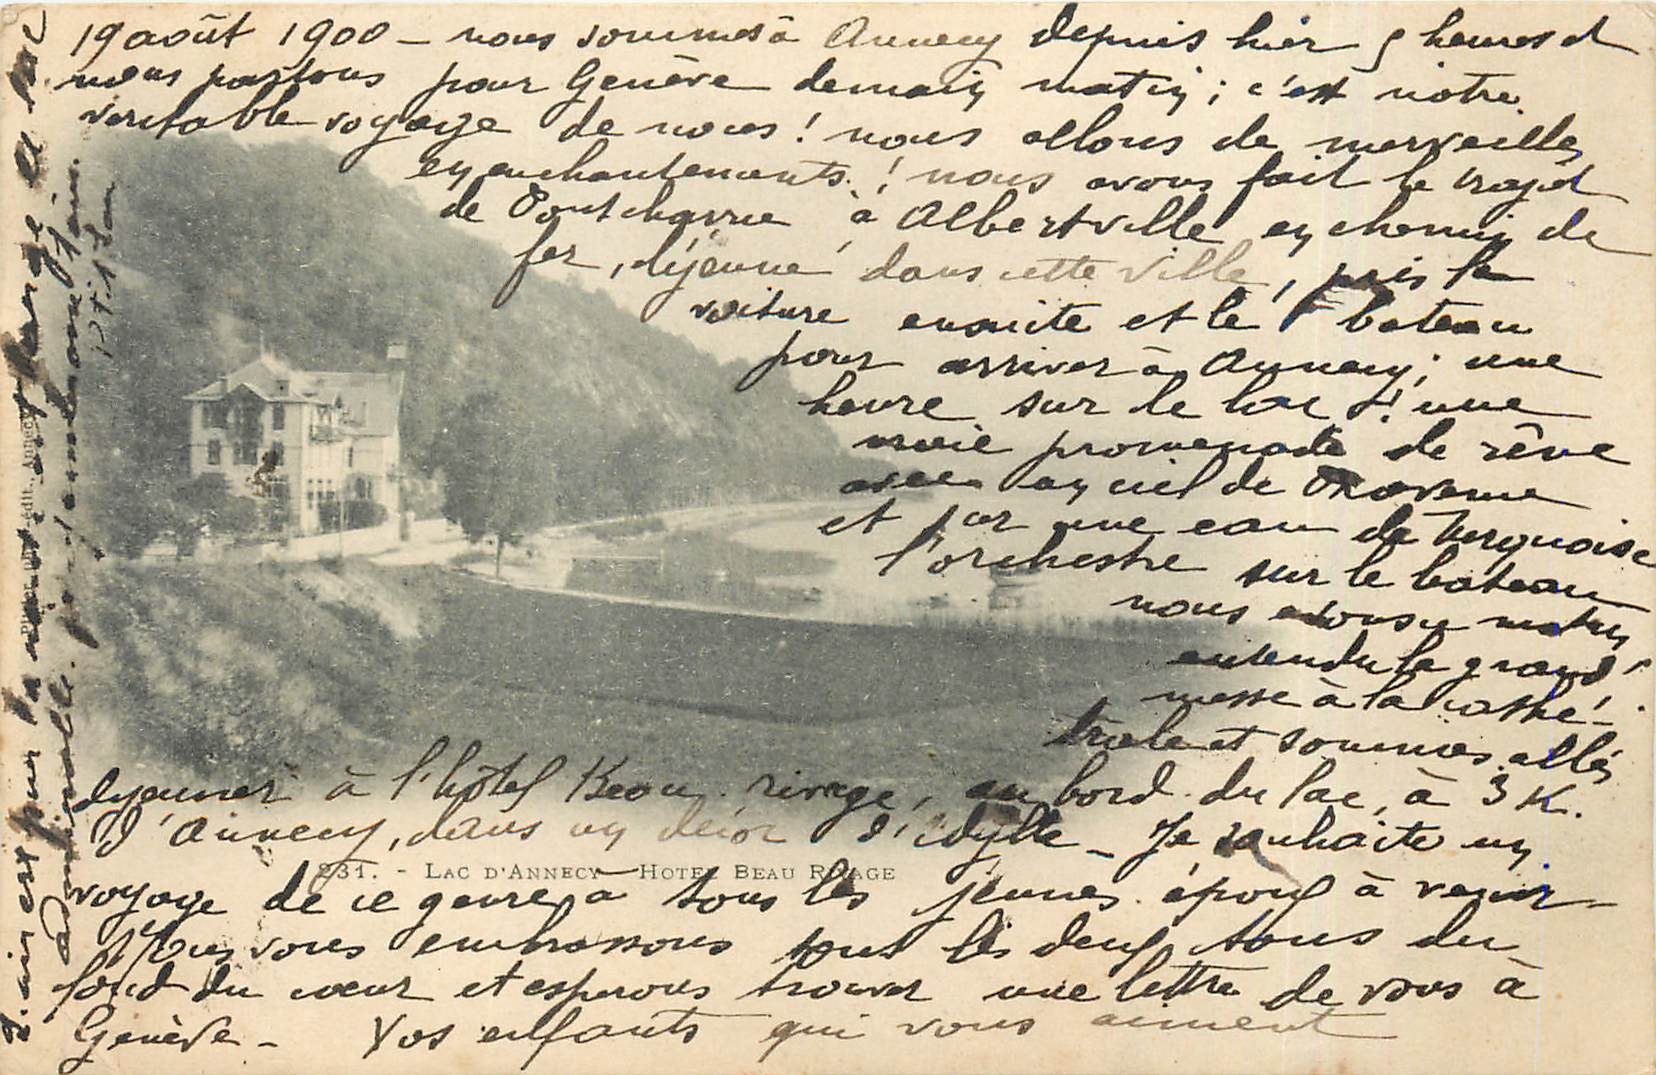 19 août 1900 - nous sommes à Annecy depuis hier 5 heures et
nous partons pour Genève demain matin ; c'est notre
veritable voyage de noces ! nous allons de merveilles
en enchantements ! nous avons fait le trajet
de Pontcharra à Albertville en chemin de
fer, déjeuné dans cette ville, pris la
voiture ensuite et le bateau
pour arriver à Annecy ; une
heure sur le lac ! une
vraie promenade de rêve
avec un ciel de Provence
et sur une eau de turquoise
l'orchestre sur le bateau
nous avons ce matin
entendu la grand'
messe à la cathé-
drale et sommes allés
déjeuner à l'hôtel Beau rivage, au bord du lac, à 3 K.
d'Annecy, dans un décor d'idylle - Je souhaite un
231. - LAC D'ANNECY - HOTEL BEAU RIVAGE
voyage de ce genre à tous les jeunes époux à venir -
Nous vous embrassons tout les deux tous du
fond du cœur et esperons trouver une lettre de vous à
Genève - Vos enfants qui vous aiment